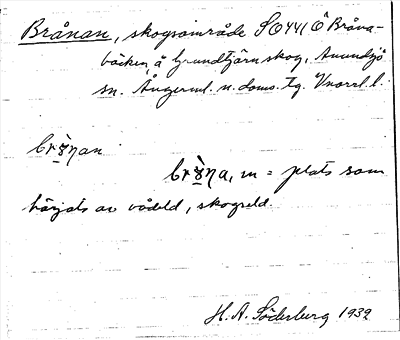 Brånan, skogsområde SO441 Ö Bråna-
bäcken, å Grundtjärn skog, Anundsjö
sn. Ångerml. n. doms. tg. Vnorrl. l.
brɤ̀ŋan
brɤ̀ŋa, m = plats som
härjats av vådeld, skogseld.
H. A. Söderberg 1939